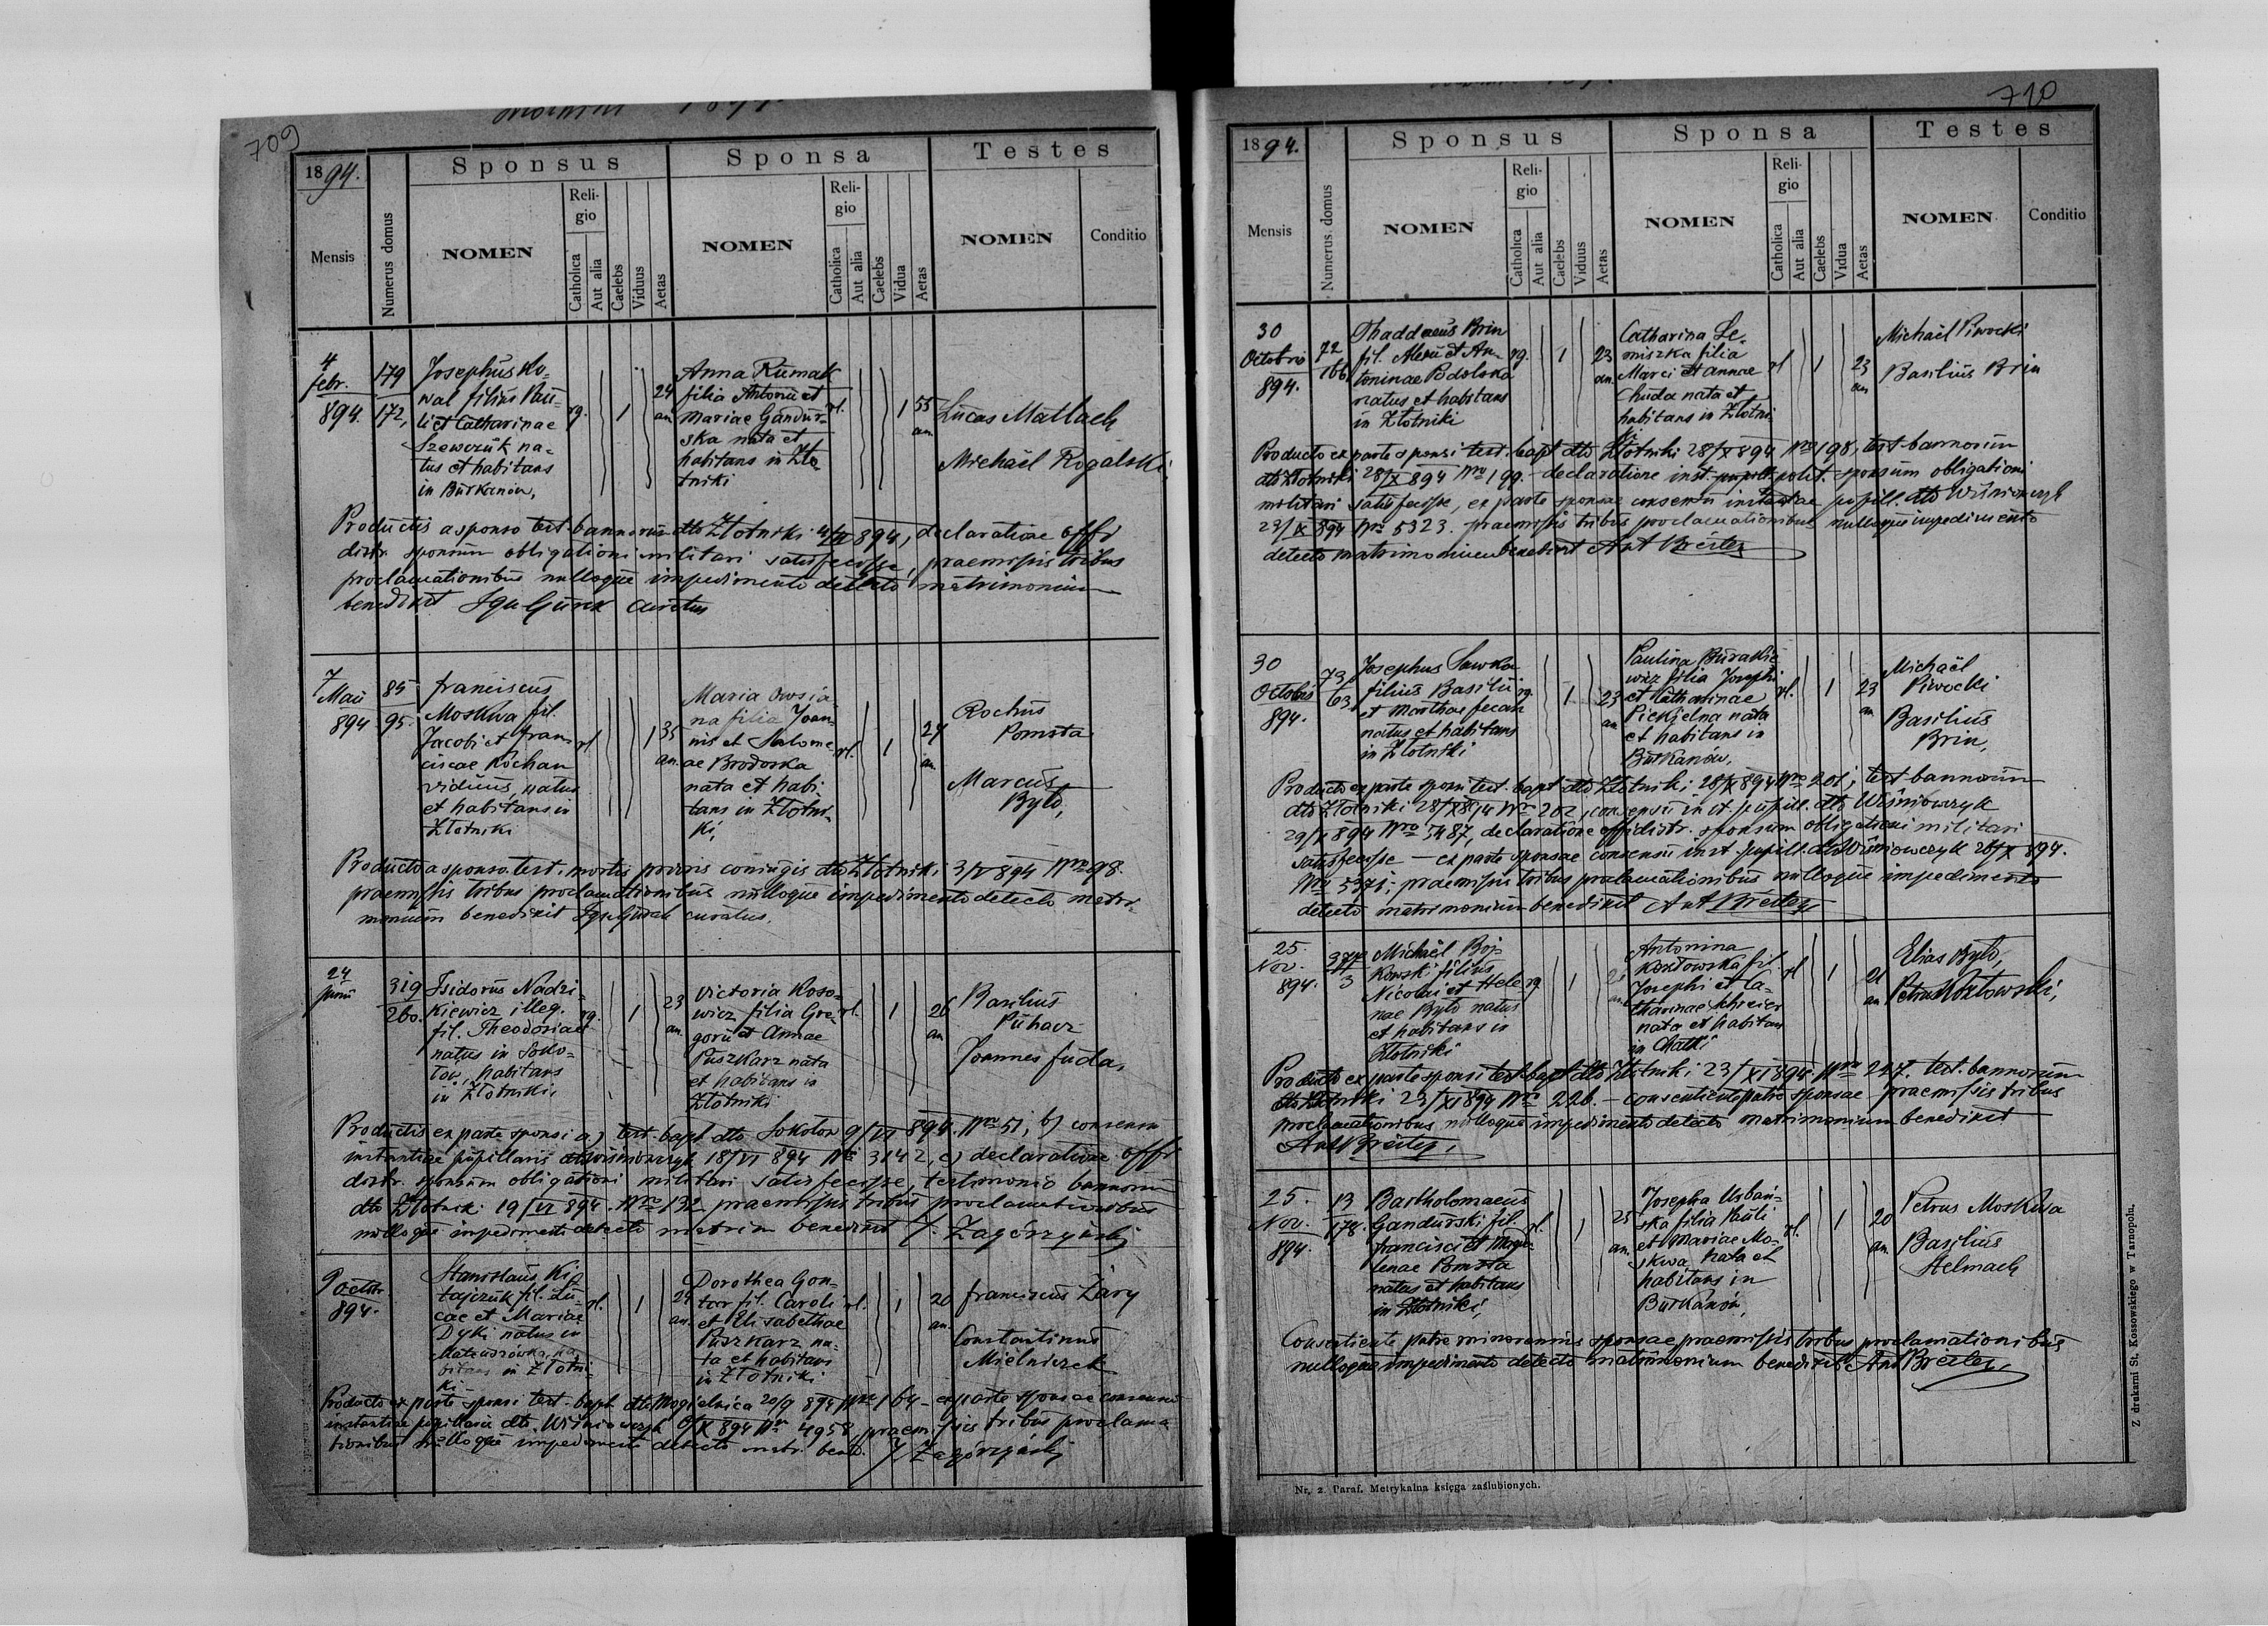 709
1894.
Mensis
Numerus domus
Sponsus
NOMEN
Religio
Catholica
Aut alia
Caelebs
Viduus
Aetas
Sponsa
NOMEN
Religio
Catholica
Aut alia
Caelebs
Vidua
Aetas
Testes
NOMEN
Conditio
4
febr.
894.
179
172,
Josephus Ko-
wal filius Pau-
li et Catharinae
Szewczuk na-
tus et habitans
in Burkanów,
rg.
1
24
an
Anna Rumak
filia Antonii et
Mariae Gandur-
ska nata et
habitans in Zło
tniki
rl.
1
55
an
Lucas Matlach
Michaël Rogalski
Productis a sponso test. bannorum dto Złotniki 4/II 894, declaratione offi
distr. sponsum obligationi militari satisfecisse, praemissis tribus
proclamationibus nulloque impedimento detecto matrimonium
benedixit Ign Gurek curatus
7
Maii
894
85
95.
Franciscus
Moskwa fil.
Jacobi et Fran-
ciscae Kochan
viduus, natus
et habitans in
Złotniki
rl.
1
35
an.
Maria Owsia-
na filia Joan-
nis et Salome-
ae Brodoska
nata et habi-
tans in Złotni-
ki,
rl.
1
27
an.
Rochus
Pomsta
Marcus
Byto,
Producto a sponso test. mortis prioris coniugis dto Złotniki 3/V 894 Nro 98.
praemissis tribus proclamationibus nulloque impedimento detecto matri-
monium benedixit Ign Gurek curatus.
24
Junii
319
260.
Isidorus Nadzi-
kiewicz illeg.
fil. Theodosiae
natus in Soko-
łow, habitans
in Złotniki,
rg.
1
23
an.
Victoria Koso-
wicz filia Gre-
gorii et Annae
Puszkarz nata
et habitans in
Złotniki
rl.
1
26
an
Basilius
Puhacz
Joannes Juda,
Productis ex parte sponsi a) test. bapt dto Sokołow 9/VI 894. Nro 51, b) consensu
instantiae pupillaris dto Wiśniowczyk 18/VI 894 Nro 3142, c) declaratione offi
distr. sponsum obligationi militari satisfecisse, testimonio bannorum
dto Złotniki 19/VI 894. Nro 132 praemissis tribus proclamationibus
nulloque impedimento detecto matrim benedixit J. Zagórzyński
9 octobr
894.
Stanislaus Ki-
tajczuk fil. Lu-
cae et Mariae
Dyki natus in
Mateuszówka, ha-
bitans in Złotni-
ki
rl.
1
24
an.
Dorothea Gon-
tar fil. Caroli
et Elisabethae
Puszkarz na-
ta et habitans
in Złotniki
rl.
1
20
an.
Franciscus Żary
Constantinus
Mielniczek
Producto ex parte sponsi test. bapt. dto Mogielnica 20/9 894 Nro 164 - ex parte sponsae consensu
instantiae pupillaris dto Wiśniowczyk 9/X 894 Nro 4958, praemissis tribus proclama
tionibus nulloque impedimento detecto matr. bened. J. Zagórzyński
710
1894.
Mensis
Numerus domus
Sponsus
NOMEN
Religio
Catholica
Aut alia
Caelebs
Viduus
Aetas
Sponsa
NOMEN
Religio
Catholica
Aut alia
Caelebs
Vidua
Aetas
Testes
NOMEN
Conditio
30
Octobris
894.
72
166
Thaddaeus Brin
fil. Alexii et An-
toninae Podolska
natus et habitans
in Złotniki
rg.
1
23
an.
Catharina Se-
miszka filia
Marci et Annae
Chuda nata et
habitans in Złotni-
ki
rl
1
23
an
Michaël Piwocki
Basilius Brin
Producto ex parte sponsi test. bapt dto Złotniki 28/X 894 Nro 198, test bannorum
dto Złotniki 28/X 894 Nro 199. - declaratione inst. polit. sponsum obligationi
militari satisfecisse, ex parte sponsae consensu instantiae pupill. dto Wiśniowczyk
23/X 894 Nro 5323. praemissis tribus proclamationibus nulloque impedimento
detecto matrimonium benedixit Ant Breiter
30
Octobris
894.
73
63
Josephus Sawka
filius Basilii
et Marthae Fecan
natus et habitans
in Złotniki
rg.
1
23
an
Paulina Burakie
wicz filia Josephi
et Catharinae
Piekielna nata
et habitans in
Burkanów,
rl.
1
23
an
Michaël
Piwocki
Basilius
Brin,
Producto ex parte sponsi test. bapt dto Złotniki 28/X 894 Nro 201; test bannorum
dto Złotniki 28/X 894 Nro 202, consensu inst. pupill. dto Wiśniowczyk
29/X 894 Nro 5487, declaratione offi distr. sponsum obligationi militari
satisfecisse - ex parte sponsae consensu inst. pupill. dto Wiśniowczyk 28/X 894.
Nro 5371; praemissis tribus proclamationibus nulloque impedimento
detecto matrimonium benedixit Ant Breiter
25.
Nov.
894.
3
Michaël Boj-
kowski filius
Nicolai et Hele-
nae Byto natus
et habitans in
Złotniki
rg
1
an
Antonina
Kozłowska fil
Josephi et Ca-
tharinae Schreier
nata et habitans
in Chatki
rl
1
21
an
Elias Byto,
Petrus Kozłowski,
Producto ex parte sponsi test bapt dto Złotniki 23/XI 894. Nro 227. test. bannorum
dto Złotniki 23/XI 894 Nro 226. - consentiente patre sponsae - praemissis tribus
proclamationibus nulloque impedimento detecto matrimonium benedixit
Ant Breiter,
25.
Nov.
894.
13
178.
Bartholomaeus
Gandurski fil.
Francisci et Magda-
lenae Pomsta
natus et habitans
in Złotniki,
rl.
1
25
an.
Josepha Urbań-
ska filia Pauli
et Mariae Mo-
skwa nata et
habitans in
Burkanów,
rl.
1
20
an.
Petrus Moskwa
Basilius
Stelmach
Consentiente patre minorennis sponsae praemissis tribus proclamationibus
nulloque impedimento detecto matrimonium benedixit Ant Breiter,
Nr. 2. Paraf. Metrykalna księga zaślubionych.
Z drukarni St. Kossowskiego w Tarnopolu.